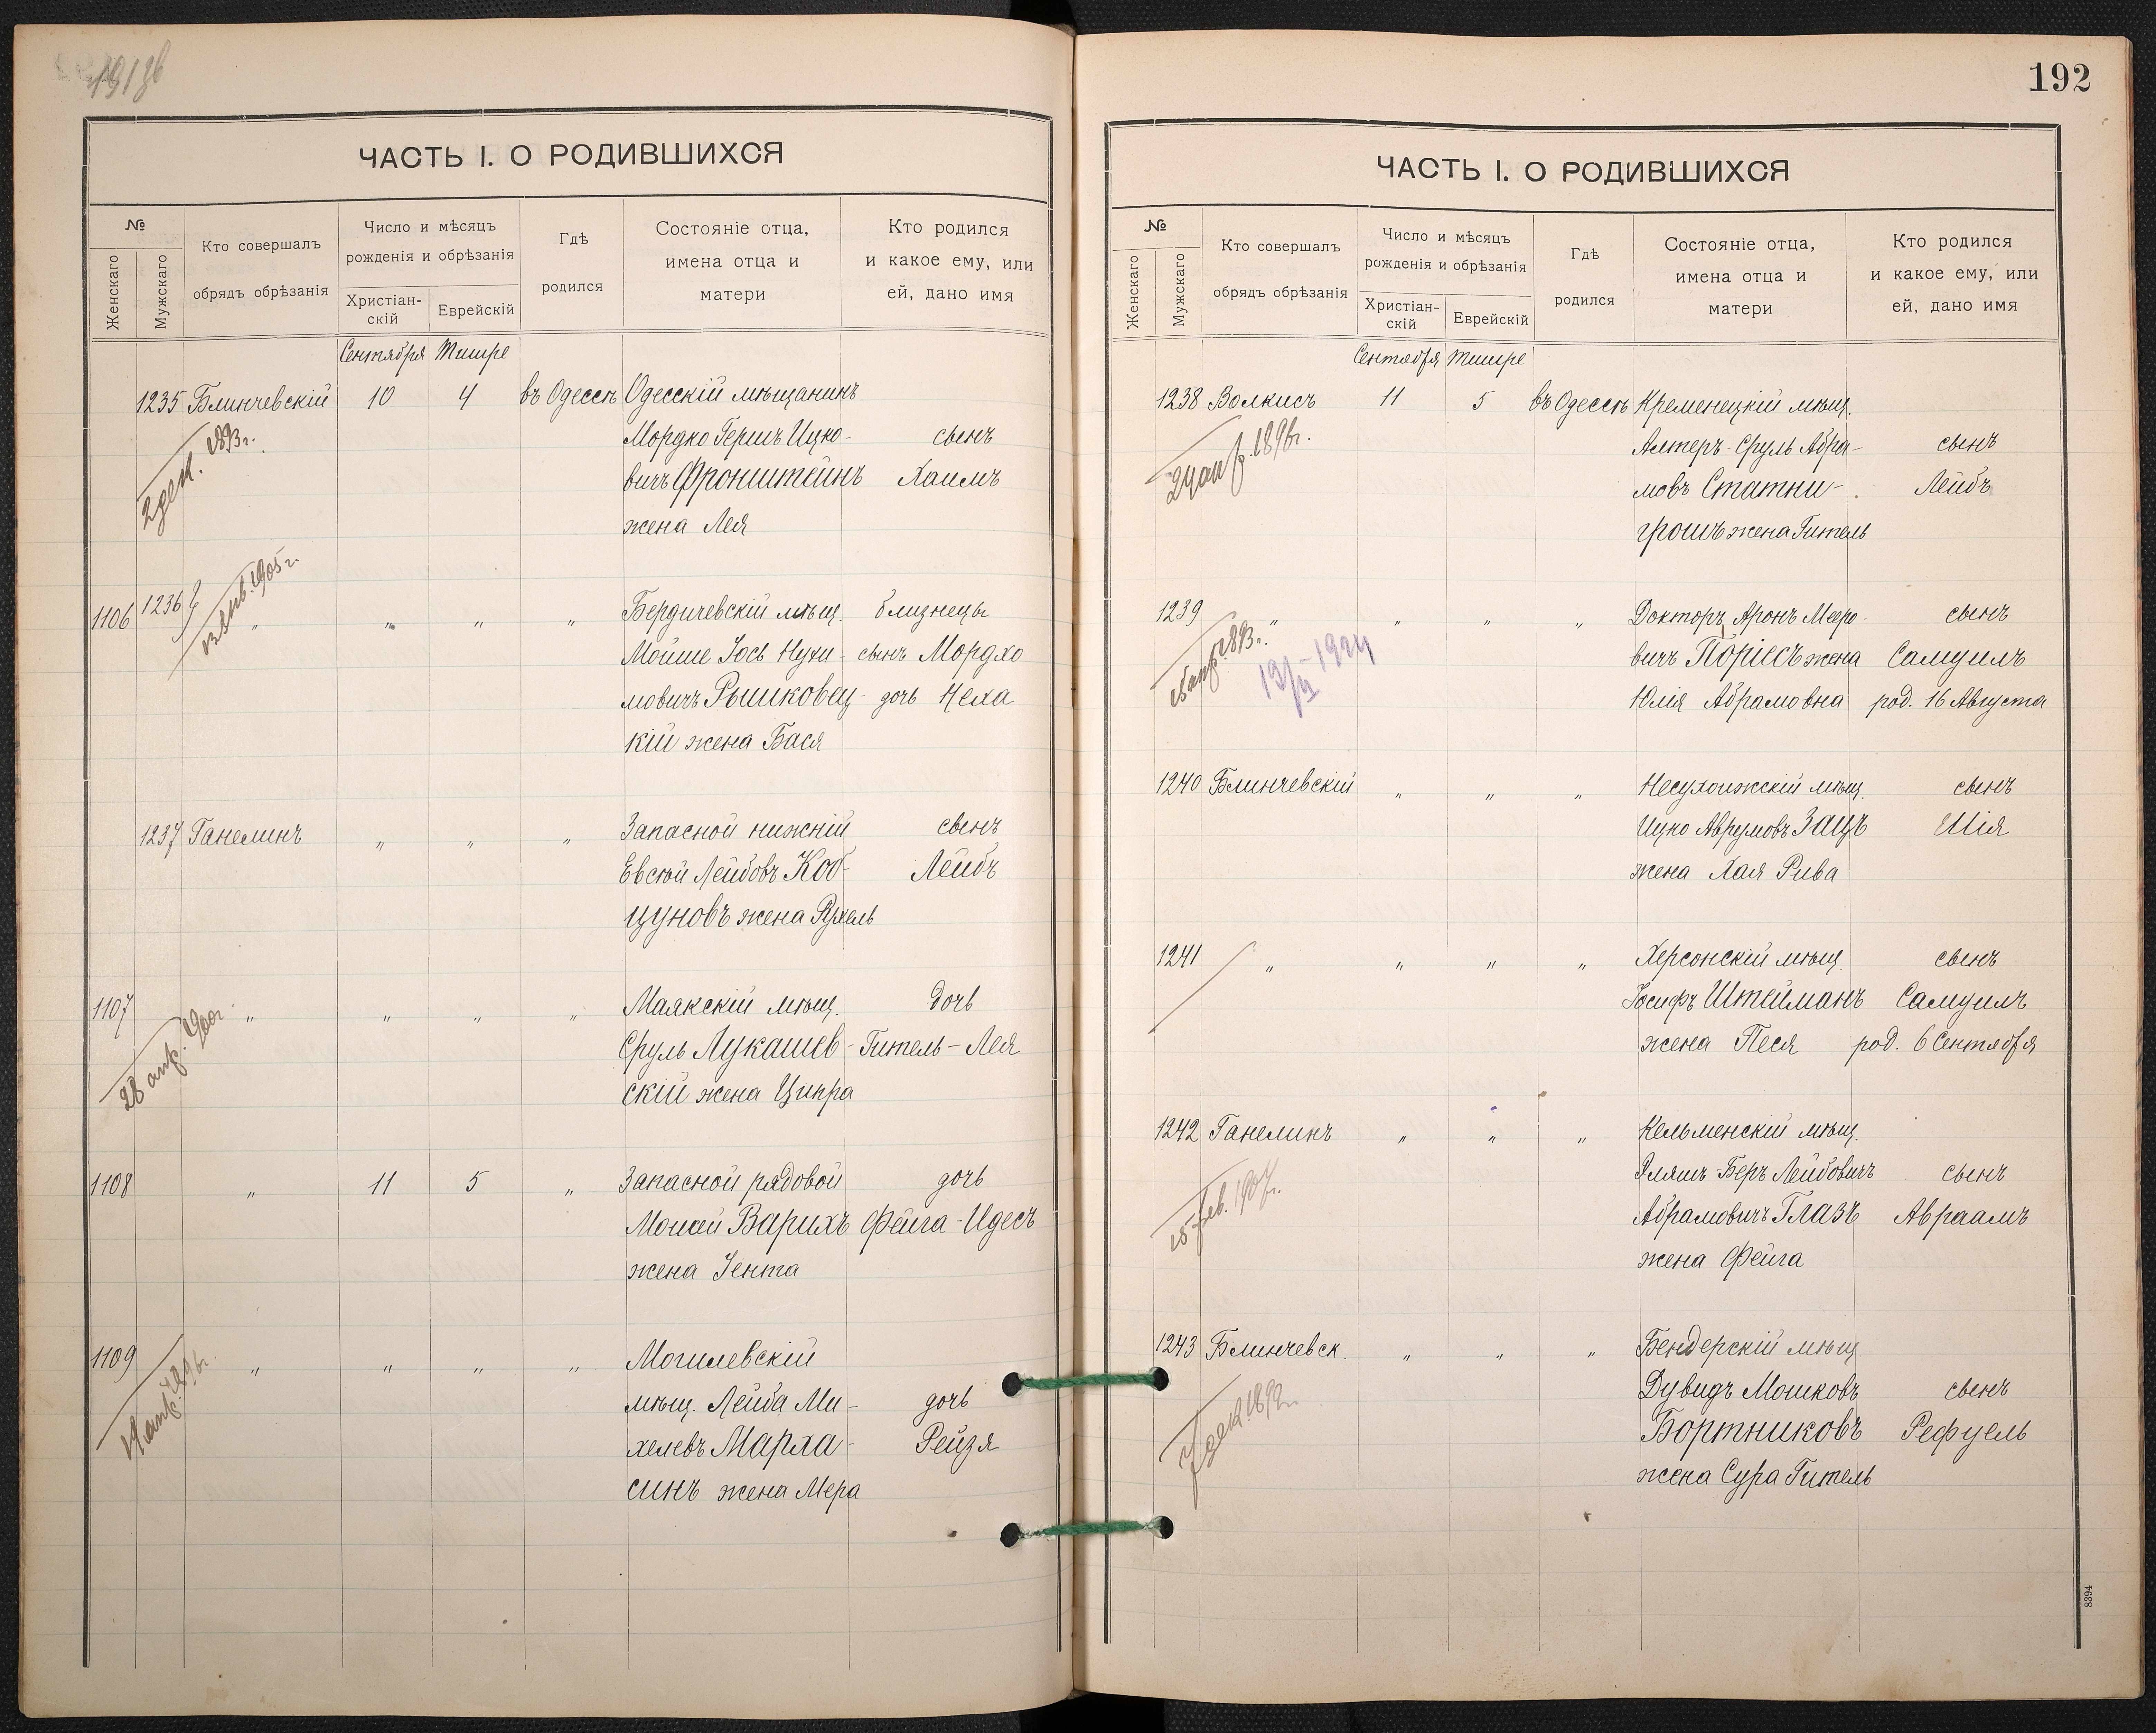 191 об
ЧАСТЬ I. О РОДИВШИХСЯ
№
Женскаго
Мужскаго
Кто совершалъ
обрядъ обрѣзанія
Число и мѣсяцъ
рожденія и обрѣзанія
Христіан-
скій
Еврейскій
Гдѣ
родился
Состояніе отца,
имена отца и
матери
Кто родился
и какое ему, или
ей, дано имя
Сентября Тишре
1235 Блинчевскій 10 4 въ Одессѣ Одесскій мѣщанинъ
Мордко Гершъ Ицко- сынъ
вичъ Фронштейнъ Хаимъ
жена Лея
2 дек. 1893 г.
1106 1236 " " " " Бердичевскій мѣщ. близнецы
Мойше Іось Нухи- сынъ Мордхо
мовичъ Рышковец- дочь Неха
кій жена Бася
янв. 1905 г.
1237 Ганелинъ " " " Запасной нижній сынъ
Евсѣй Лейбовъ Коб- Лейбъ
цуновъ жена Рухель
1107 " " " " Маякскій мѣщ. дочь
Сруль Лукашев- Гитель-Лея
скій жена Ципра
28 апр. 1900 г.
1108 " 11 5 " Запасной рядовой дочь
Моисей Варихъ Фейга-Идесъ
жена Іента
1109 " " " " Могилевскій
мѣщ. Лейба Ми- дочь
хелевъ Марха- Рейзя
синъ жена Мера
апр. 1896 г.
192
ЧАСТЬ I. О РОДИВШИХСЯ
№
Женскаго
Мужскаго
Кто совершалъ
обрядъ обрѣзанія
Число и мѣсяцъ
рожденія и обрѣзанія
Христіан-
скій
Еврейскій
Гдѣ
родился
Состояніе отца,
имена отца и
матери
Кто родился
и какое ему, или
ей, дано имя
Сентября Тишре
1238 Волкисъ 11 5 въ Одессѣ Кременецкій мѣщ.
Алтеръ-Сруль Абра- сынъ
мовъ Статни- Лейбъ
грошъ жена Гитель
24 апр. 1896 г.
1239 " " " " Докторъ Аронъ Мееро- сынъ
вичъ Поріесъ жена Самуилъ
Юлія Абрамовна род. 16 Августа
апр. 1893 г.
1924
1240 Блинчевскій " " " Несухоижскій мѣщ. сынъ
Ицко Аврумовъ Зацъ Шія
жена Хая Рива
1241 " " " " Херсонскій мѣщ. сынъ
Іосифъ Штейманъ Самуилъ
жена Песя род. 6 Сентября
1242 Ганелинъ " " " Кельменскій мѣщ.
Эляшъ-Беръ Лейбовичъ сынъ
Абрамовичъ Глазъ Авраамъ
жена Фейга
фев. 1907 г.
1243 Блинчевск. " " " Бендерскій мѣщ.
Дувидъ Мошковъ сынъ
Бортниковъ Рефуель
жена Сура Гитель
8394